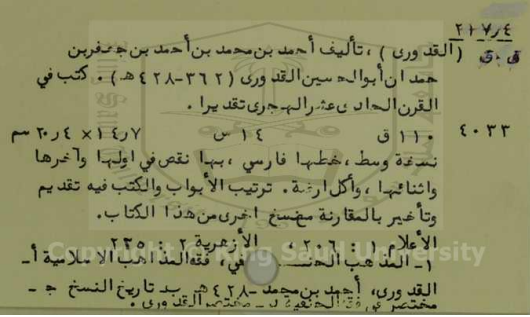 ٢١٧٫٤
ق.ق (القدورى)، تأليف أحمد بن محمد بن أحمد بن جعفر بن
حمدان أبو الحسين القدورى (٣٦٢-٤٢٨هـ). كتب في
القرن الحادى عشر الهجرى تقديرا.
٤٠٣٣ ١١٠ ق ١٤ س ١٤٫٧ × ٢٠٫٤ سم
نسخة وسط، خطها فارسي، بها نقص في اولها وآخرها
واثنائها، وأكل ارضة. ترتيب الأبواب والكتب فيه تقديم
وتأخير بالمقارنة مع نسخ اخرى من هذا الكتاب.
الأعلام ١ : ٢٠٦، الأزهرية ٢ : ٢٣٥
١- المذهب الحنفي، فقه المذاهب الاسلامية أ-
القدورى، أحمد بن محمد -٤٢٨هـ ب- تاريخ النسخ ج-
مختصر في فقه الحنفية د- مختصر القدورى.
Copyright © King Saud University